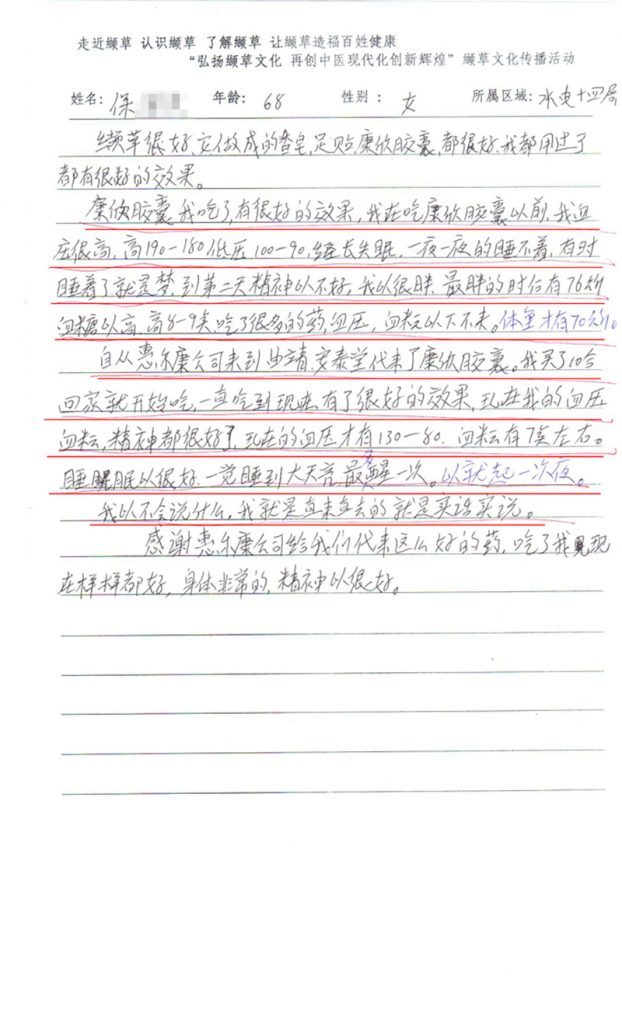 走近缬草 认识缬草 了解缬草 让缬草造福百姓健康
“弘扬缬草文化 再创中医现代化创新辉煌” 缬草文化传播活动
姓名: 保 年龄: 68 性别: 女 所属区域: 水电十四局
缬草很好,它做成的香皂,足贴,康欣胶囊,都很好.我都用过了
都有很好的效果。
康欣胶囊我吃了,有很好的效果,我在吃康欣胶囊以前,我血
压很高,高190-180低压100-90,经长失眠,一夜一夜的睡不着,有时
睡着了就是梦,到第二天精神以不好,我以很胖,最胖的时后有76公斤
血糖以高,高8-9类吃了很多的药,血压,血糖以下不来。体重才有70公斤。
自从惠尔康公司来到曲靖,安泰堂代来了康欣胶囊。我买了10合
回家就开始吃,一直吃到现在有了很好的效果,现在我的血压
血糖,精神都很好了,现在的血压才有130-80.血糖有7类左右。
睡眠以很好.一觉睡到大天亮最多醒一次。以就起一次夜。
我以不会说什么,我就是直来直去的就是实话实说。
感谢惠尔康公司给我们代来这么好的药,吃了我现
在样样都好,身体非常的,精神以很好。